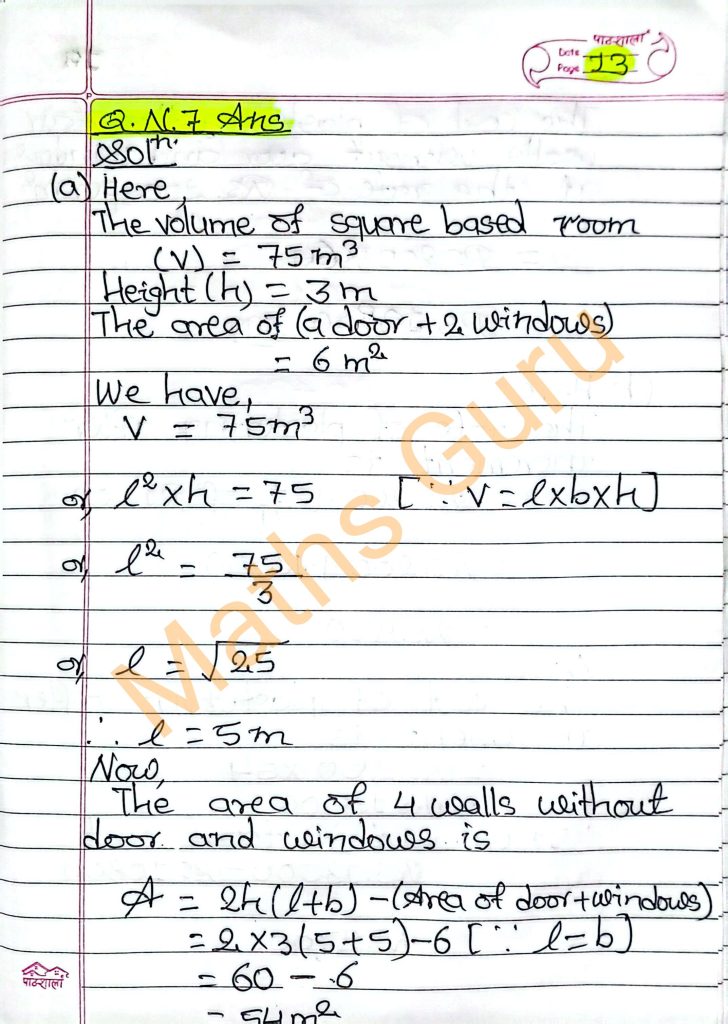 पाठशाला
Date
Page 13
P
Q.N.7 Ans
Solⁿ:
(a) Here,
The volume of square based room
(V) = 75m³
Height (h) = 3m
The area of (a door + 2 windows)
= 6 m²
We have,
V = 75m³
or, l² × h = 75 [∵ V = l×b×h]
or, l² = 75/3
or, l = √25
∴ l = 5m
Now,
The area of 4 walls without
door and windows is
A = 2h(l+b) - (Area of door+windows)
= 2×3(5+5) - 6 [∵ l=b]
= 60 - 6
= 54m²
पाठशाला
Maths Guru